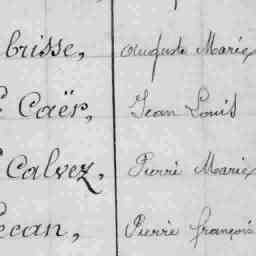 brisse, Auguste Marie
Caër, Jean Louis
Calvez, Pierre Marie
ecan, Pierre françois